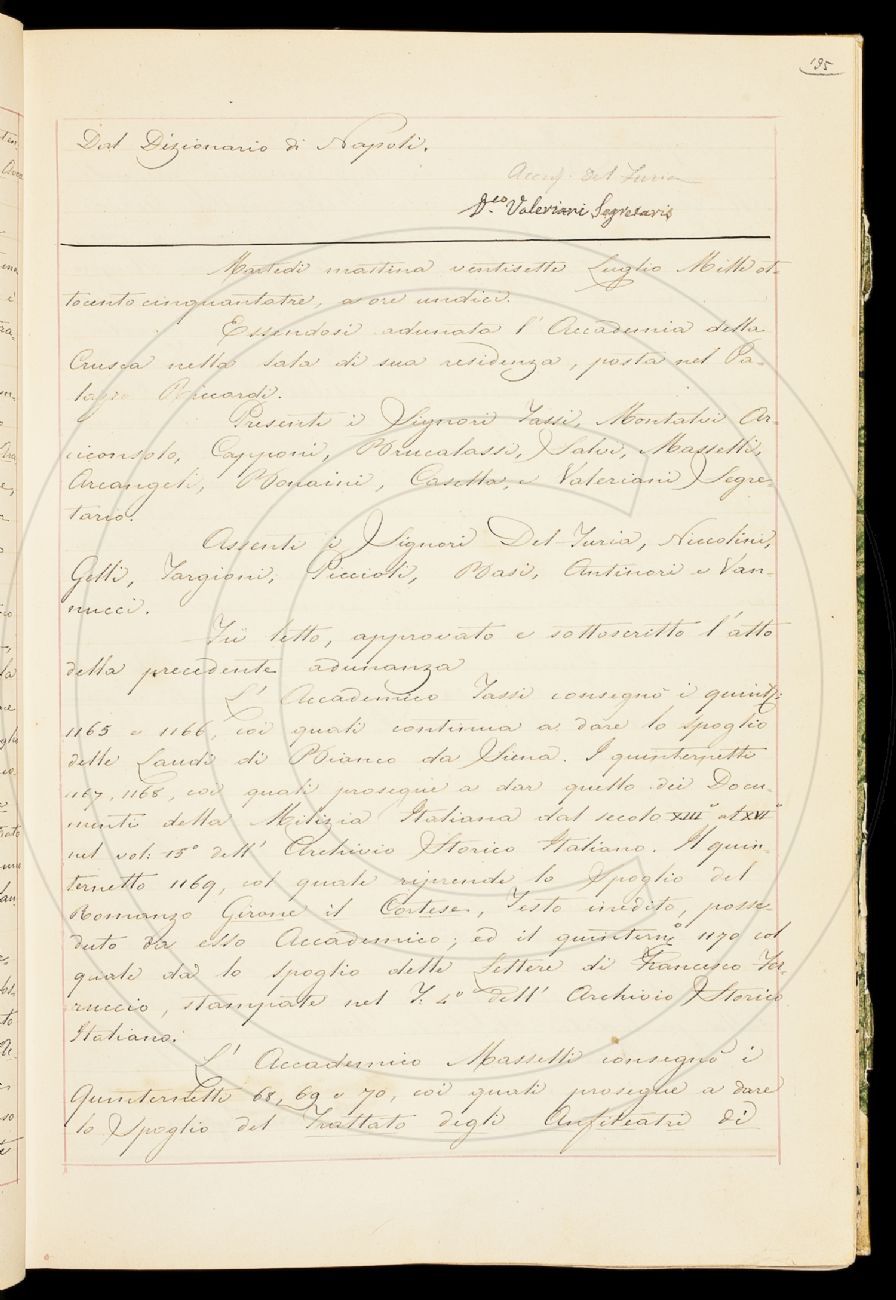 195
Dal Dizionario di Napoli.
Del Furia
D.co Valeriani Segretario
Martedì mattina ventisette Luglio Mille ot-
tocento cinquantatre, a ore undici.
Essendosi adunata l' Accademia della
Crusca nella sala di sua residenza, posta nel Pa-
lazzo Riccardi.
Presenti i Signori Tassi, Montalvi Ar-
ciconsolo, Capponi, Brucalassi, Salvi, Masselli,
Arcangeli, Bonaini, Casella, e Valeriani Segre-
tario.
Assenti i Signori Del Furia, Niccolini,
Gelli, Targioni, Piccioli, Basi, Antinori e Van-
nucci.
Fù letto, approvato e sottoscritto l'atto
della precedente adunanza
L' Accademico Tassi consegnò i quint.i
1165 e 1166, coi quali continua a dare lo spoglio
delle Laudi di Bianco da Siena. I quinternetti
1167, 1168, coi quali prosegue a dar quello dei Docu-
menti della Milizia Italiana dal secolo XIII° al XVI°
nel vol: 15° dell' Archivio Storico Italiano. Il quin-
ternetto 1169, col quale riprende lo Spoglio del
Romanzo Girone il Cortese, Testo inedito, posse-
duto da esso Accademico; ed il quintern.o 1170 col
quale dà lo spoglio delle Lettere di Francesco Fer-
ruccio, stampate nel T. 4° dell' Archivio Storico
Italiano.
L' Accademico Masselli consegnò i
Quinternetti 68, 69 e 70, coi quali prosegue a dare
lo Spoglio del Trattato degli Anfiteatri di